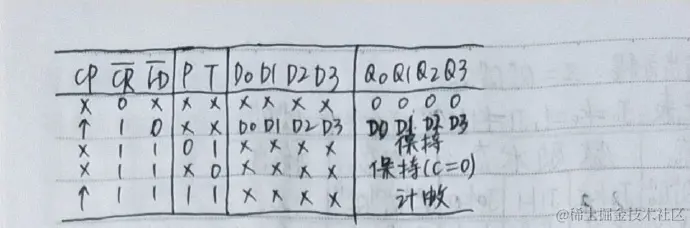 CP C̅R̅ L̅D̅ P T D0 D1 D2 D3 Q0 Q1 Q2 Q3
× 0 × × × × × × × 0 0 0 0
↑ 1 0 × × D0 D1 D2 D3 D0 D1 D2 D3
× 1 1 0 1 × × × × 保持
× 1 1 × 0 × × × × 保持(C=0)
↑ 1 1 1 1 × × × × 计数
@稀土掘金技术社区